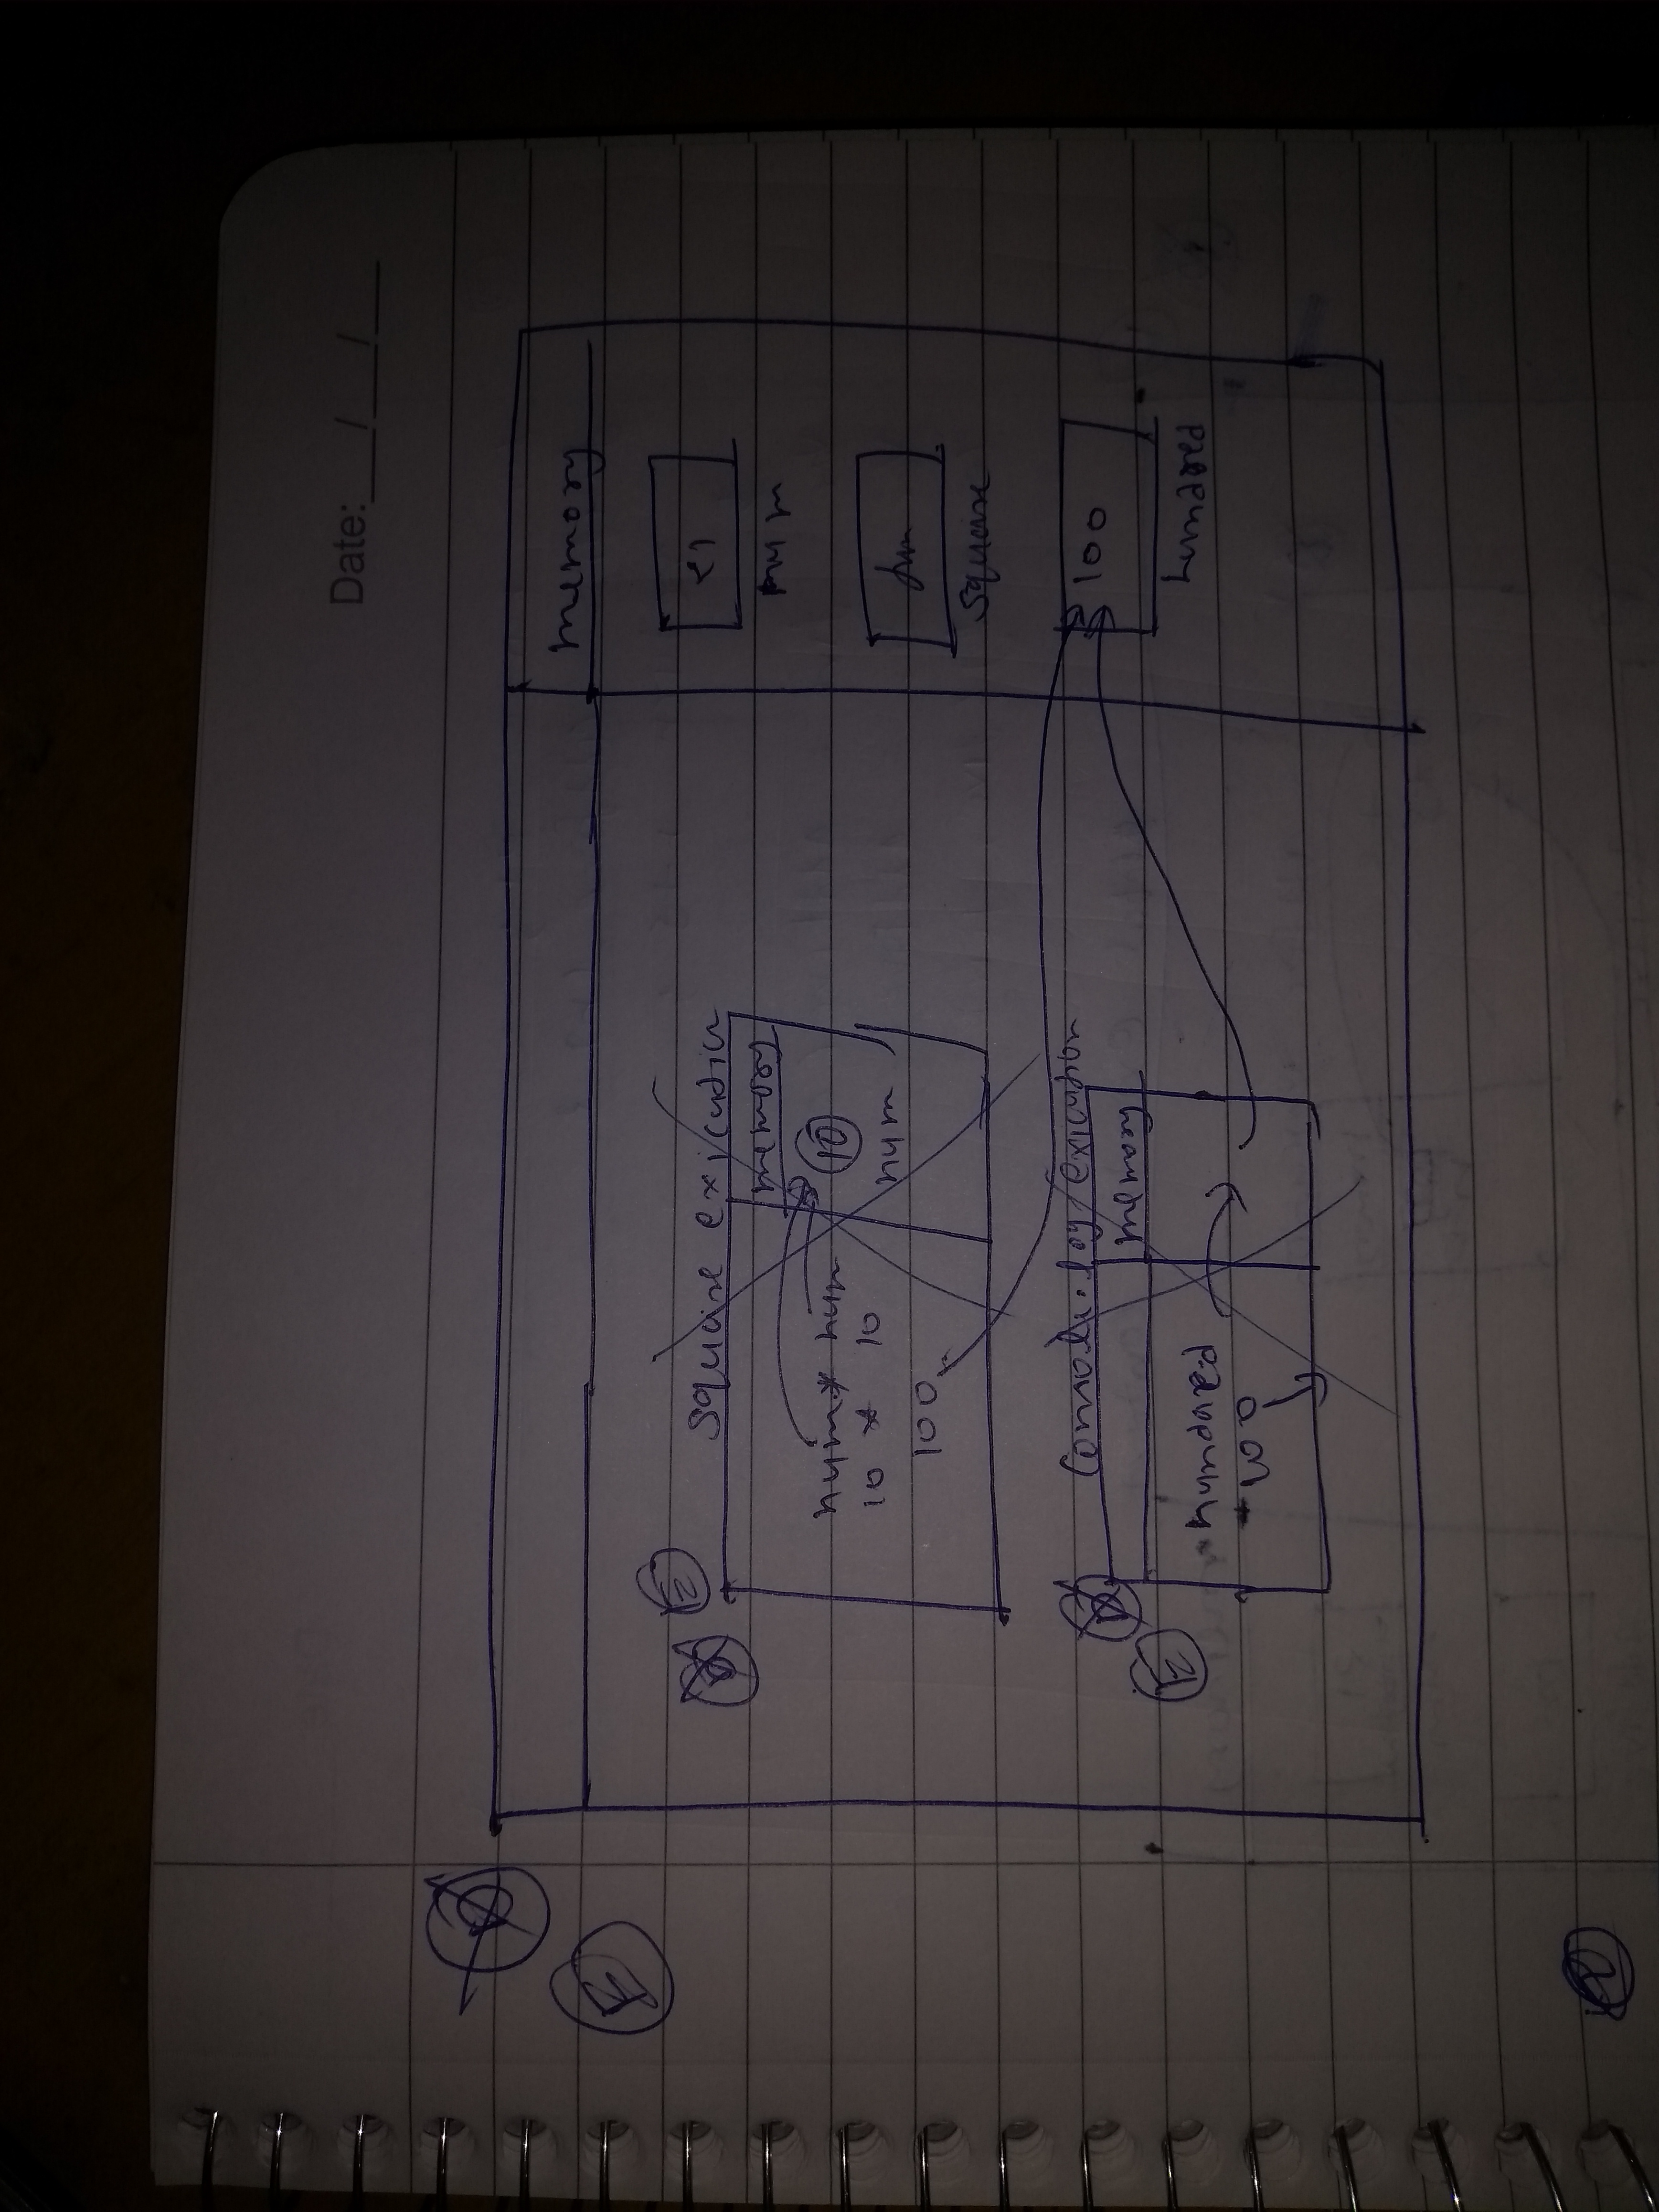 Date: __/__/__
memory
num
fun
square
100
hundred
square exicution
memory
10
num
num * num
10 * 10
100
console.log exicution
memory
hundred
100